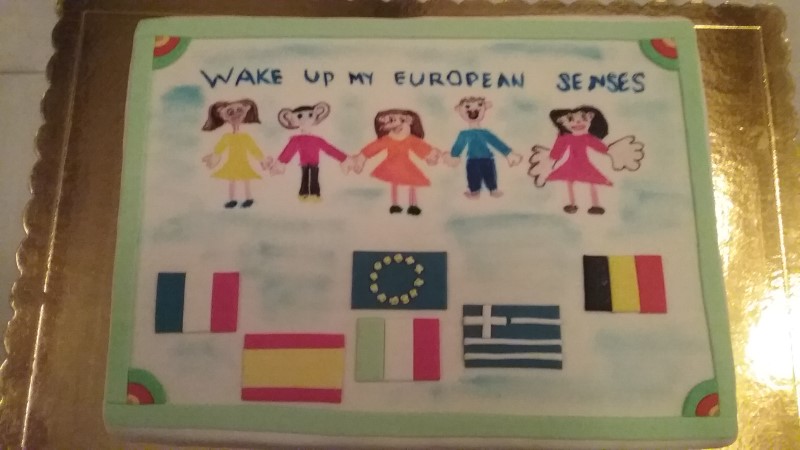 WAKE UP MY EUROPEAN SENSES